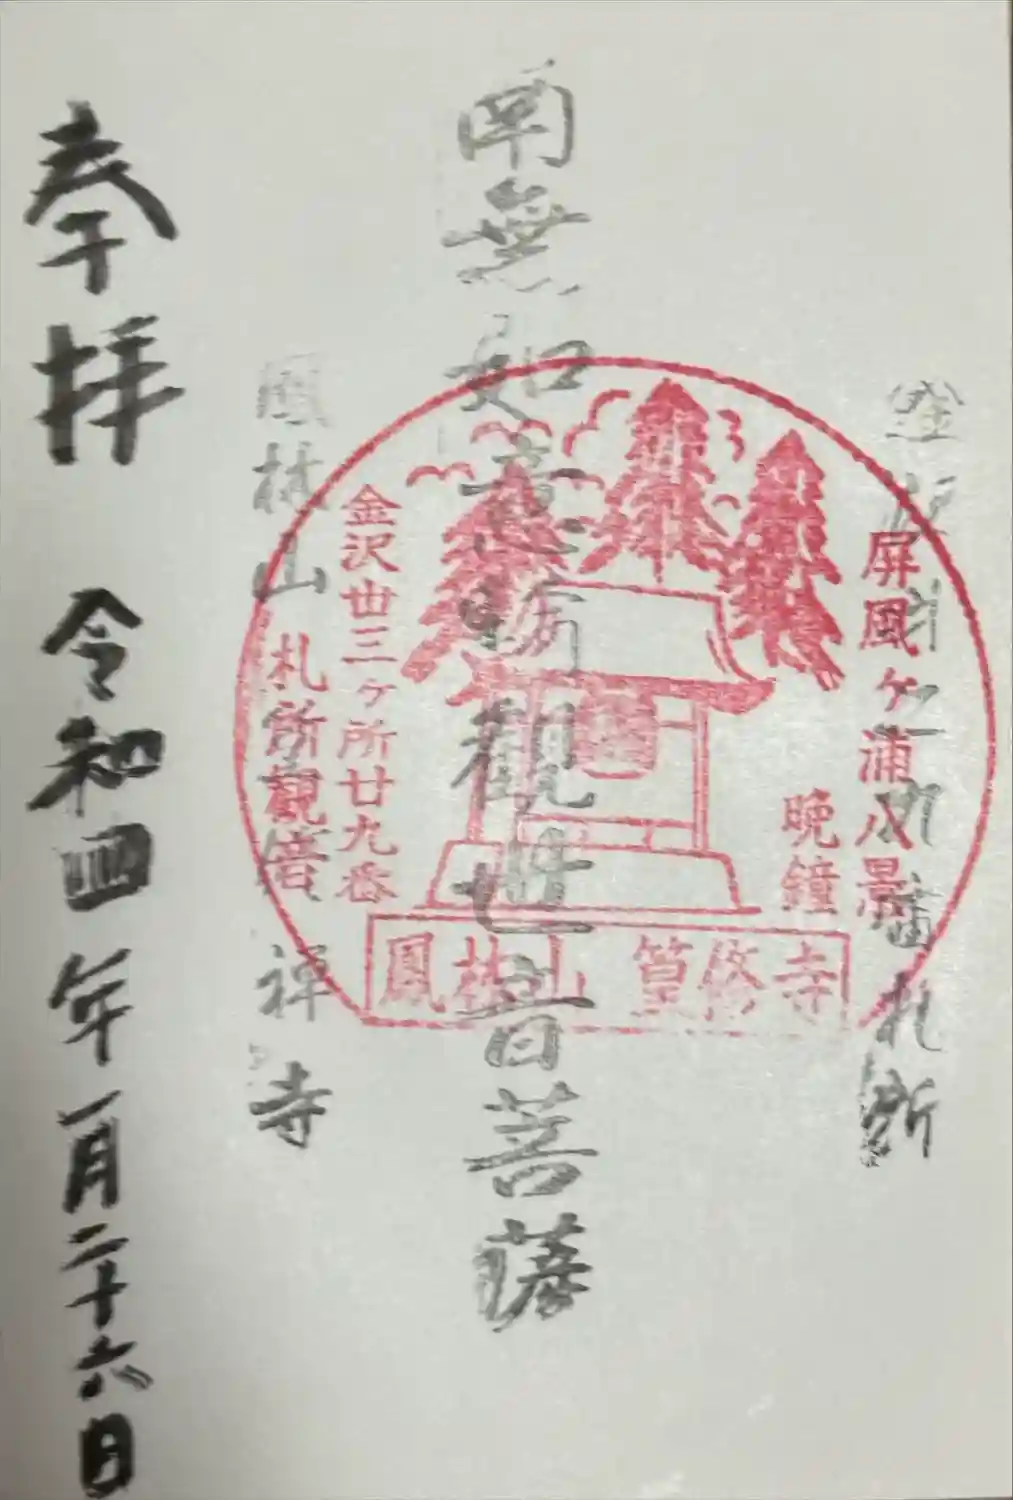 札所
屏風ヶ浦八景
晩鐘
南無如意輪觀世音菩薩
金沢丗三ヶ所廿九番
札所觀音
鳳林山 篁修寺
鳳林山 禅寺
奉拝 令和四年一月二十六日